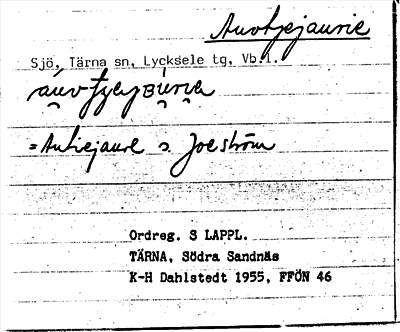 Auvtjejaurie
Sjö, Tärna sn, Lycksele tg, Vb.l.
=Autiejaure o. Joeström
Ordreg. S LAPPL.
TÄRNA, Södra Sandnäs
K-H Dahlstedt 1955, FFÖN 46